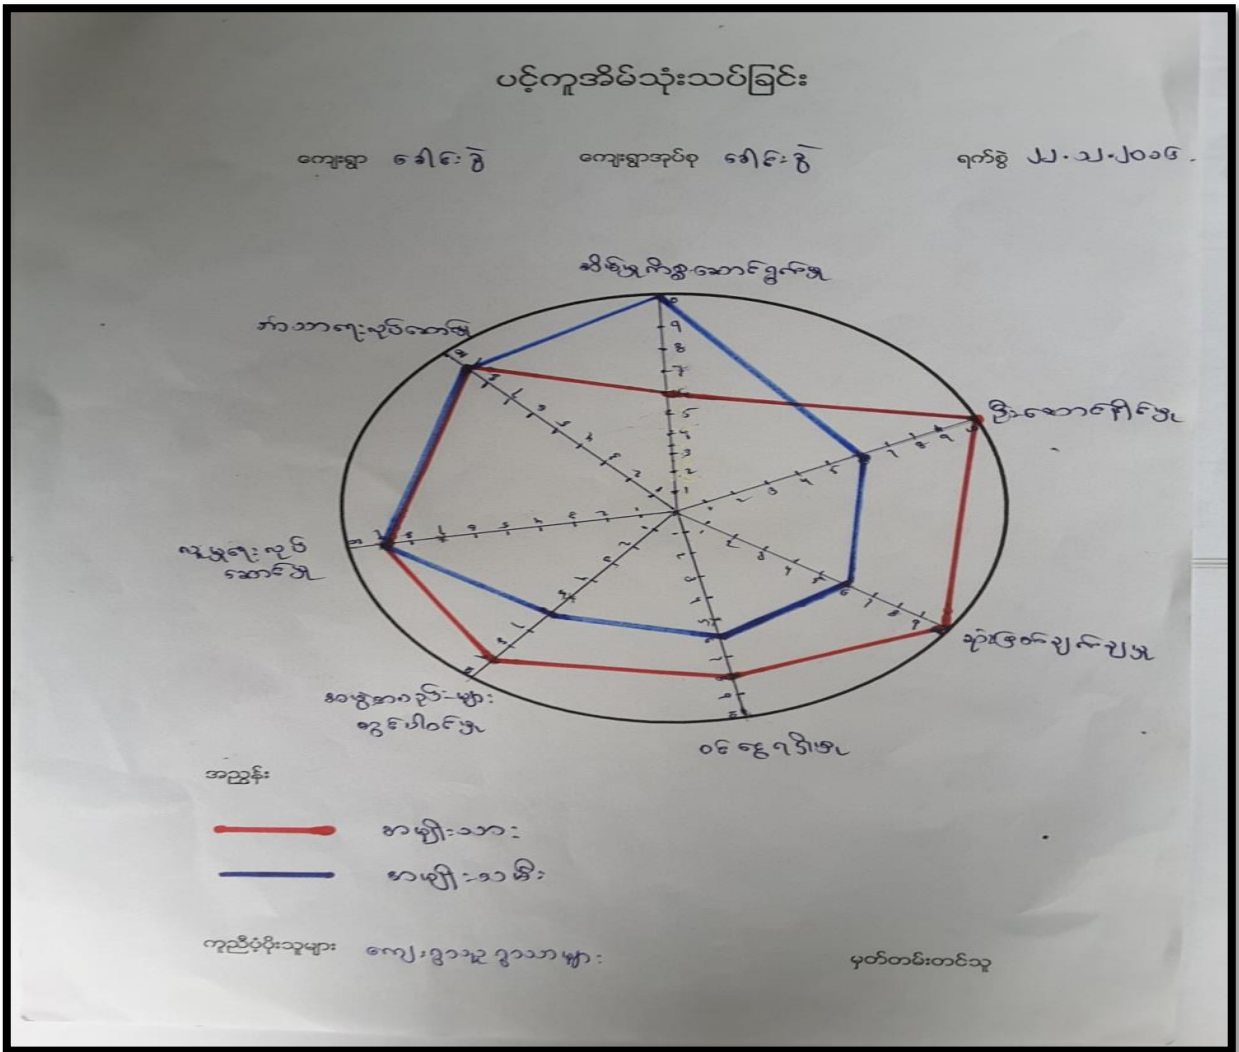 ပင့်ကူအိမ်သုံးသပ်ခြင်း
ကျေးရွာ ခေါင်းစွဲ ကျေးရွာအုပ်စု ခေါင်းစွဲ ရက်စွဲ ၂၂.၁၂.၂၀၁၆.
အိမ်မှုကိစ္စဆောင်ရွက်မှု
ဘာသာရေးလုပ်ဆောင်မှု
ဦးဆောင်နိုင်မှု
လူမှုရေးလုပ်
ဆောင်မှု
ဆုံးဖြတ်ချက်ချမှု
အဖွဲ့အစည်းများ
တွင်ပါဝင်မှု
ဝင်ငွေရရှိမှု
အညွှန်း
အမျိုးသား
အမျိုးသမီး
ကူညီပံ့ပိုးသူများ ကျေးရွာသူ ရွာသားများ မှတ်တမ်းတင်သူ